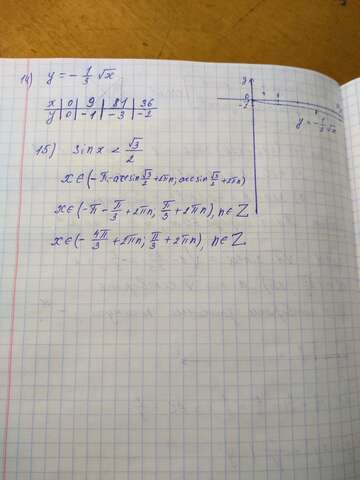 14) y = - 1/3 √x
x | 0 | 9 | 81 | 36
y | 0 | -1 | -3 | -2
y
0
-2
y = - 1/3 √x
15) sin x < √3/2
x ∈ (- π - arcsin √3/2 + 2πn; arcsin √3/2 + 2πn)
x ∈ (- π - π/3 + 2πn, π/3 + 2πn), n ∈ Z
x ∈ (- 4π/3 + 2πn; π/3 + 2πn), n ∈ Z